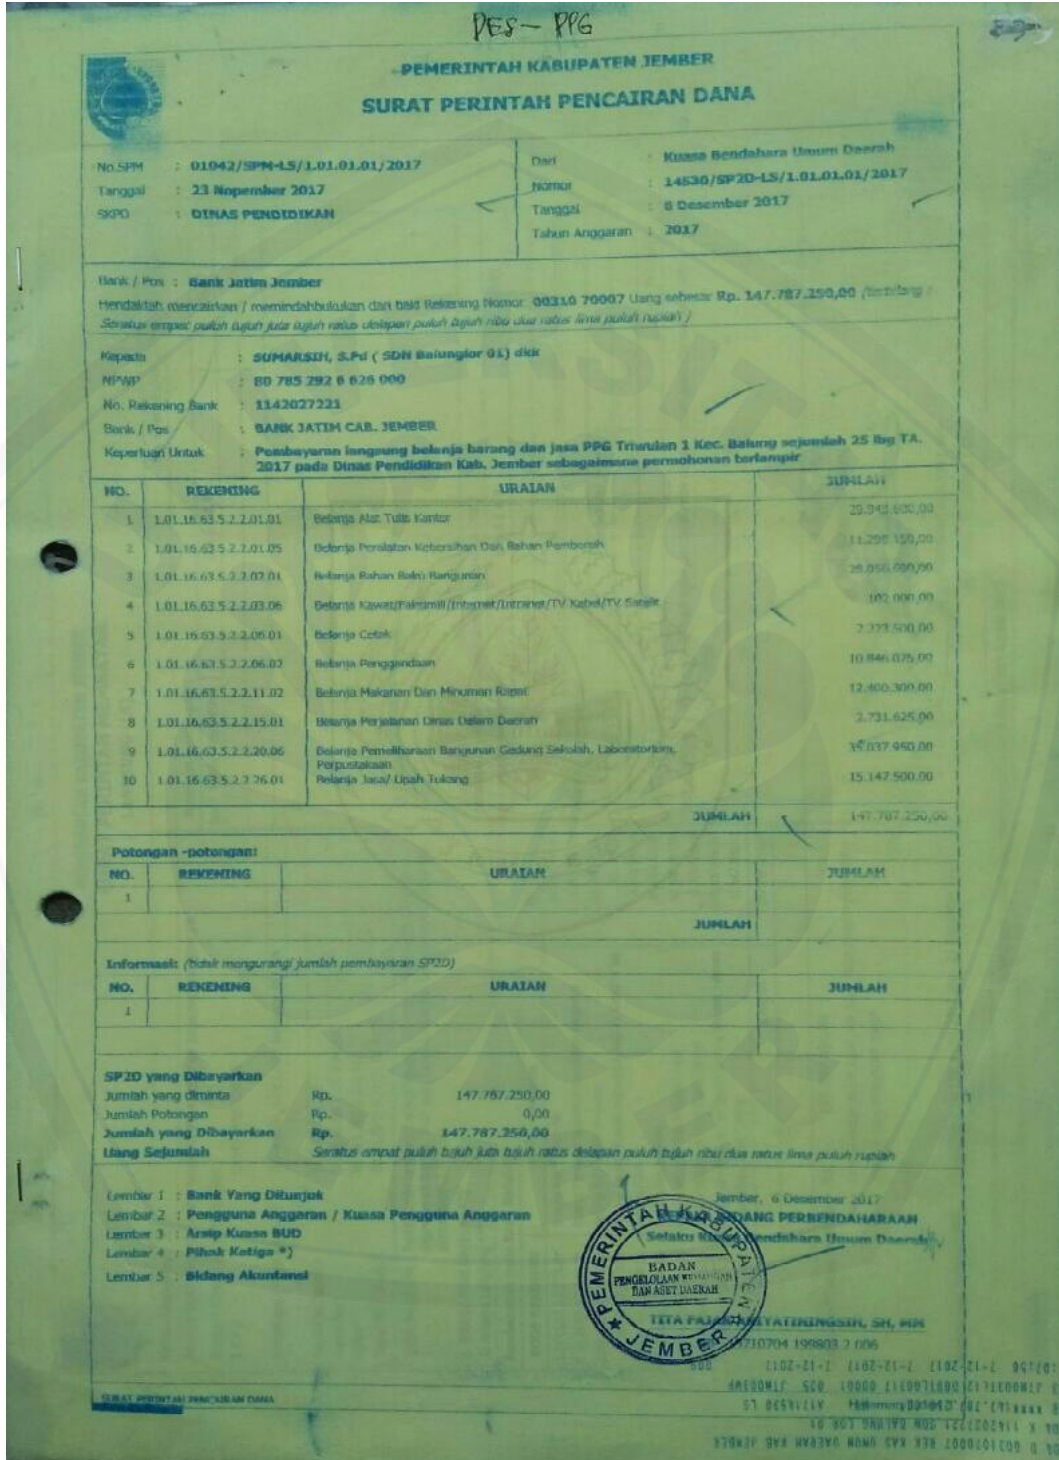 PES - PPG
PEMERINTAH KABUPATEN JEMBER
SURAT PERINTAH PENCAIRAN DANA
No.SPM : 01042/SPM-LS/1.01.01.01/2017
Tanggal : 23 Nopember 2017
SKPD : DINAS PENDIDIKAN
Dari : Kuasa Bendahara Umum Daerah
Nomor : 14530/SP2D-LS/1.01.01.01/2017
Tanggal : 6 Desember 2017
Tahun Anggaran : 2017
Bank / Pos : Bank Jatim Jember
Hendaklah mencairkan / memindahbukukan dari baki Rekening Nomor 00310 70007 Uang sebesar Rp. 147.787.250,00 (terbilang :
Seratus empat puluh tujuh juta tujuh ratus delapan puluh tujuh ribu dua ratus lima puluh rupiah )
Kepada : SUMARSIH, S.Pd ( SDN Balunglor 01) dkk
NPWP : 80 785 292 6 626 000
No. Rekening Bank : 1142027221
Bank / Pos : BANK JATIM CAB. JEMBER
Keperluan Untuk : Pembayaran langsung belanja barang dan jasa PPG Triwulan 1 Kec. Balung sejumlah 25 lbg TA.
2017 pada Dinas Pendidikan Kab. Jember sebagaimana permohonan terlampir
NO. REKENING URAIAN JUMLAH
1 1.01.16.63.5.2.2.01.01 Belanja Alat Tulis Kantor
2 1.01.16.63.5.2.2.01.05 Belanja Peralatan Kebersihan Dan Bahan Pembersih
3 1.01.16.63.5.2.2.02.01 Belanja Bahan Baku Bangunan
4 1.01.16.63.5.2.2.03.06 Belanja Kawat/Faksimili/Internet/Intranet/TV Kabel/TV Satelit 102.000,00
5 1.01.16.63.5.2.2.06.01 Belanja Cetak
6 1.01.16.63.5.2.2.06.02 Belanja Penggandaan
7 1.01.16.63.5.2.2.11.02 Belanja Makanan Dan Minuman Rapat 12.400.300,00
8 1.01.16.63.5.2.2.15.01 Belanja Perjalanan Dinas Dalam Daerah 2.731.625,00
9 1.01.16.63.5.2.2.20.06 Belanja Pemeliharaan Bangunan Gedung Sekolah, Laboratorium, 35.037.950,00
Perpustakaan
10 1.01.16.63.5.2.2.26.01 Belanja Jasa/ Upah Tukang 15.147.500,00
JUMLAH 147.787.250,00
Potongan -potongan:
NO. REKENING URAIAN JUMLAH
1
JUMLAH
Informasi: (tidak mengurangi jumlah pembayaran SP2D)
NO. REKENING URAIAN JUMLAH
1
SP2D yang Dibayarkan
Jumlah yang diminta Rp. 147.787.250,00
Jumlah Potongan Rp. 0,00
Jumlah yang Dibayarkan Rp. 147.787.250,00
Uang Sejumlah Seratus empat puluh tujuh juta tujuh ratus delapan puluh tujuh ribu dua ratus lima puluh rupiah
Lembar 1 : Bank Yang Ditunjuk
Lembar 2 : Pengguna Anggaran / Kuasa Pengguna Anggaran
Lembar 3 : Arsip Kuasa BUD
Lembar 4 : Pihak Ketiga *)
Lembar 5 : Bidang Akuntansi
Jember, 6 Desember 2017
BIDANG PERBENDAHARAAN
Selaku Kuasa Bendahara Umum Daerah
PEMERINTAH KABUPATEN
BADAN
PENGELOLAAN KEUANGAN
DAN ASET DAERAH
JEMBER
SH, MM
710704 199803 2 006
SURAT PERINTAH PENCAIRAN DANA